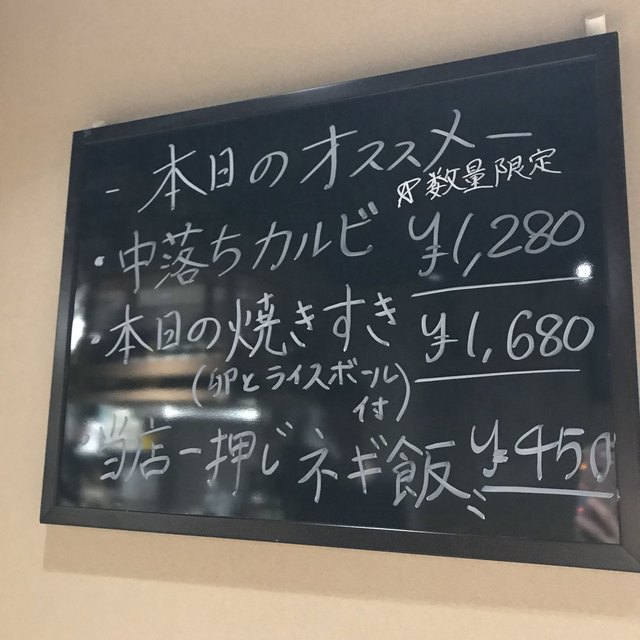 - 本日のオススメ -
☆数量限定
・中落ちカルビ ¥1,280
・本日の焼きすき ¥1,680
(卵とライスボール付)
・当店一押しネギ飯 ¥450